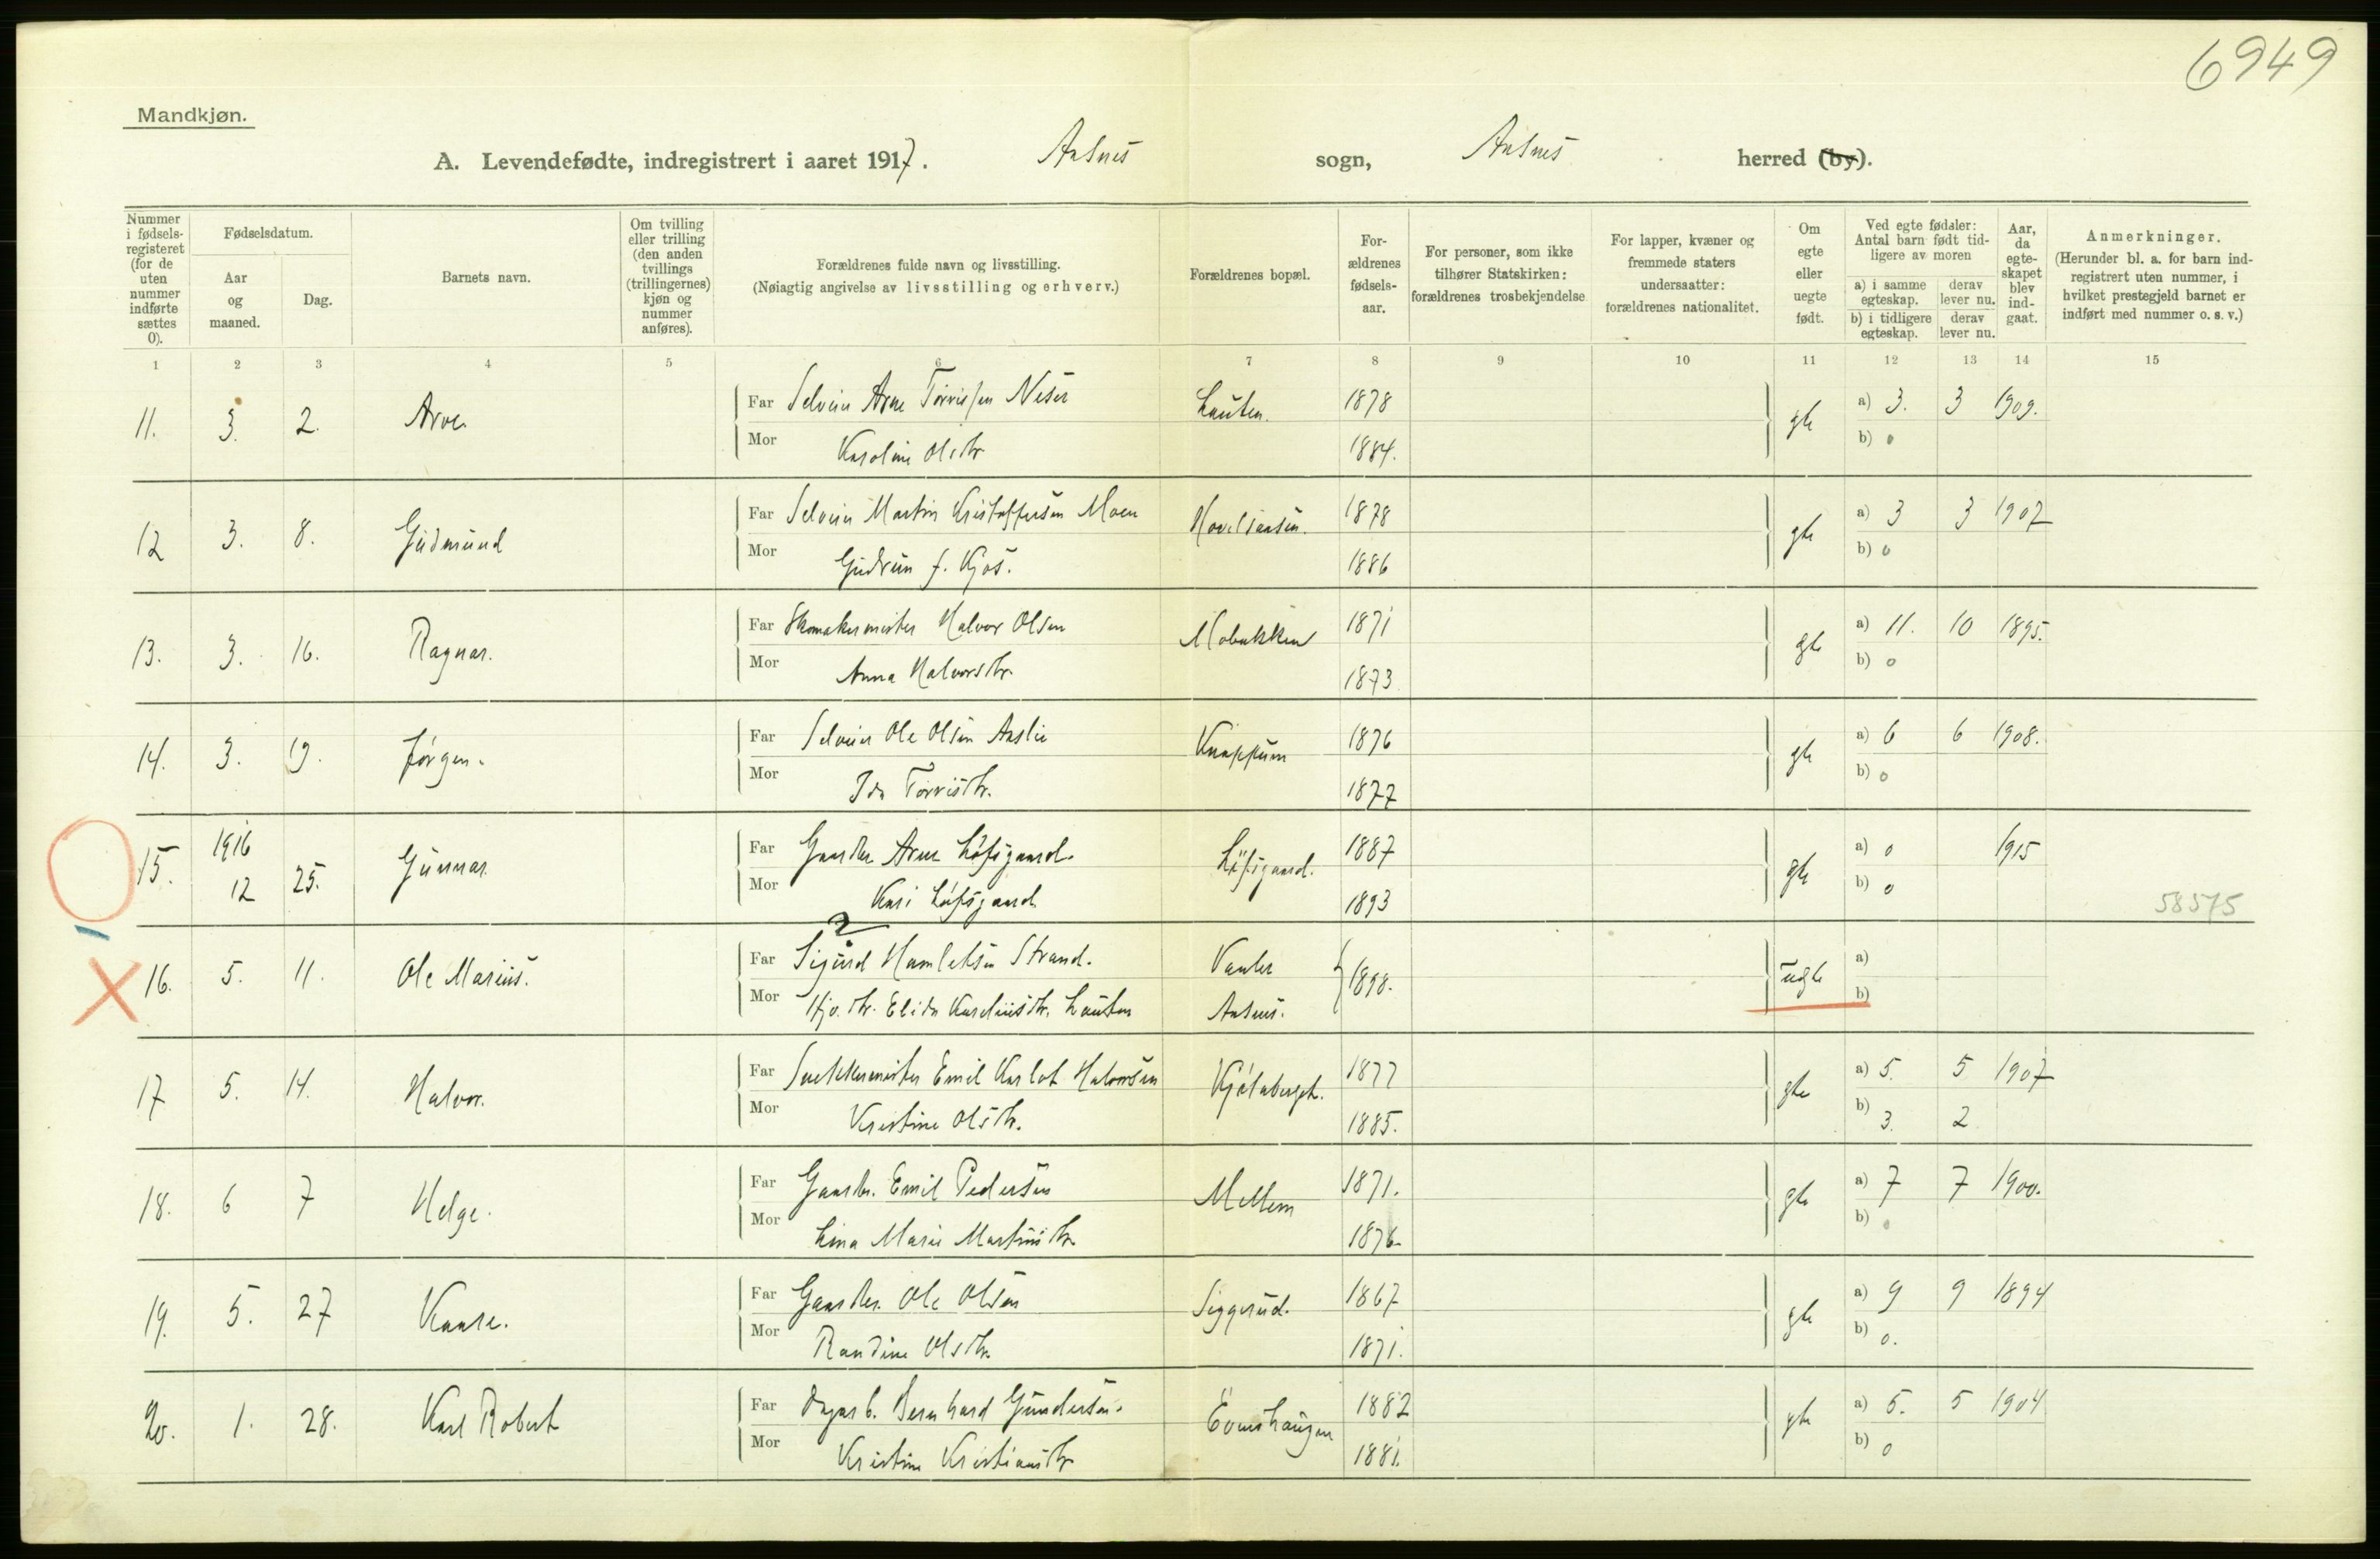 6949
Mandkjøn.
A. Levendefødte, indregistrert i aaret 1917. Aasnes sogn, Aasnes herred (by).
Nummer i fødsels-registeret (for de uten nummer indførte sættes 0).
Fødselsdatum.
Aar og maaned.
Dag.
Barnets navn.
Om tvilling eller trilling (den anden tvillings (trillingernes) kjøn og nummer anføres).
Forældrenes fulde navn og livsstilling.
(Nøiagtig angivelse av livsstilling og erhverv.)
Forældrenes bopæl.
For-ældrenes fødsels-aar.
For personer, som ikke tilhører Statskirken: forældrenes trosbekjendelse.
For lapper, kvæner og fremmede staters undersaatter: forældrenes nationalitet.
Om egte eller uegte født.
Ved egte fødsler: Antal barn født tid-ligere av moren
a) i samme egteskap. derav lever nu.
b) i tidligere egteskap. derav lever nu.
Aar, da egte-skapet blev ind-gaat.
Anmerkninger.
(Herunder bl. a. for barn ind-registrert uten nummer, i hvilket prestegjeld barnet er indført med nummer o. s. v.)
1 2 3 4 5 6 7 8 9 10 11 12 13 14 15
11. 3. 2. Arve Far Selveier Arne Neset Lauten. 1878 gte a) 3. 3 1909.
Mor Karoline Olsdtr 1884. b) 0
12 3. 8. Gudmund Far Selveier Martin Kristoffersen Moen 1878 gte a) 3 3 1907
Mor Gudrun f. Kjos. 1886 b) 0
13. 3. 16. Ragnar. Far Skomakermester Halvor Olsen Mobakken 1871 gte a) 11. 10 1895.
Mor Anna Halvorsdtr. 1873 b) 0
14. 3. 19. Jørgen. Far Selveier Ole Olsen Aaslie Knappum 1876 gte a) 6 6 1908.
Mor Ida 1877 b) 0
15. 1916 12 25. Gunnar. Far Gaardbr. Arne Løfsgaard. Løfsgaard. 1887 gte a) 0 1915
Mor Kari Løfsgaard 1893 b) 0 58575
2
16. 5. 11. Ole Marius. Far Sigurd Hamletsen Strand. Vaaler 1898. ugte a)
Mor Elida Lauten Aasnes. b)
17 5. 14. Halvor. Far Snekkermester Emil Karlot Halvorsen 1877 gte a) 5. 5 1907
Mor Kristine Olsdtr. 1885. b) 3. 2
18. 6 7 Helge. Far Gaardbr. Emil Pedersen Mellem 1871. gte a) 7 7 1900.
Mor Lina Marie Martinsdtr. 1876 b) 0
19. 5. 27 Kaare. Far Gaardbr. Ole Olsen Siggerud. 1867 gte a) 9 9 1894
Mor Randine Olsdtr. 1871. b) 0.
20. 1. 28. Karl Robert Far Dagarb. Bernhard Gundersen. Evenshaugen 1882 gte a) 5. 5 1904
Mor Kristine Kristiansdtr 1881. b) 0